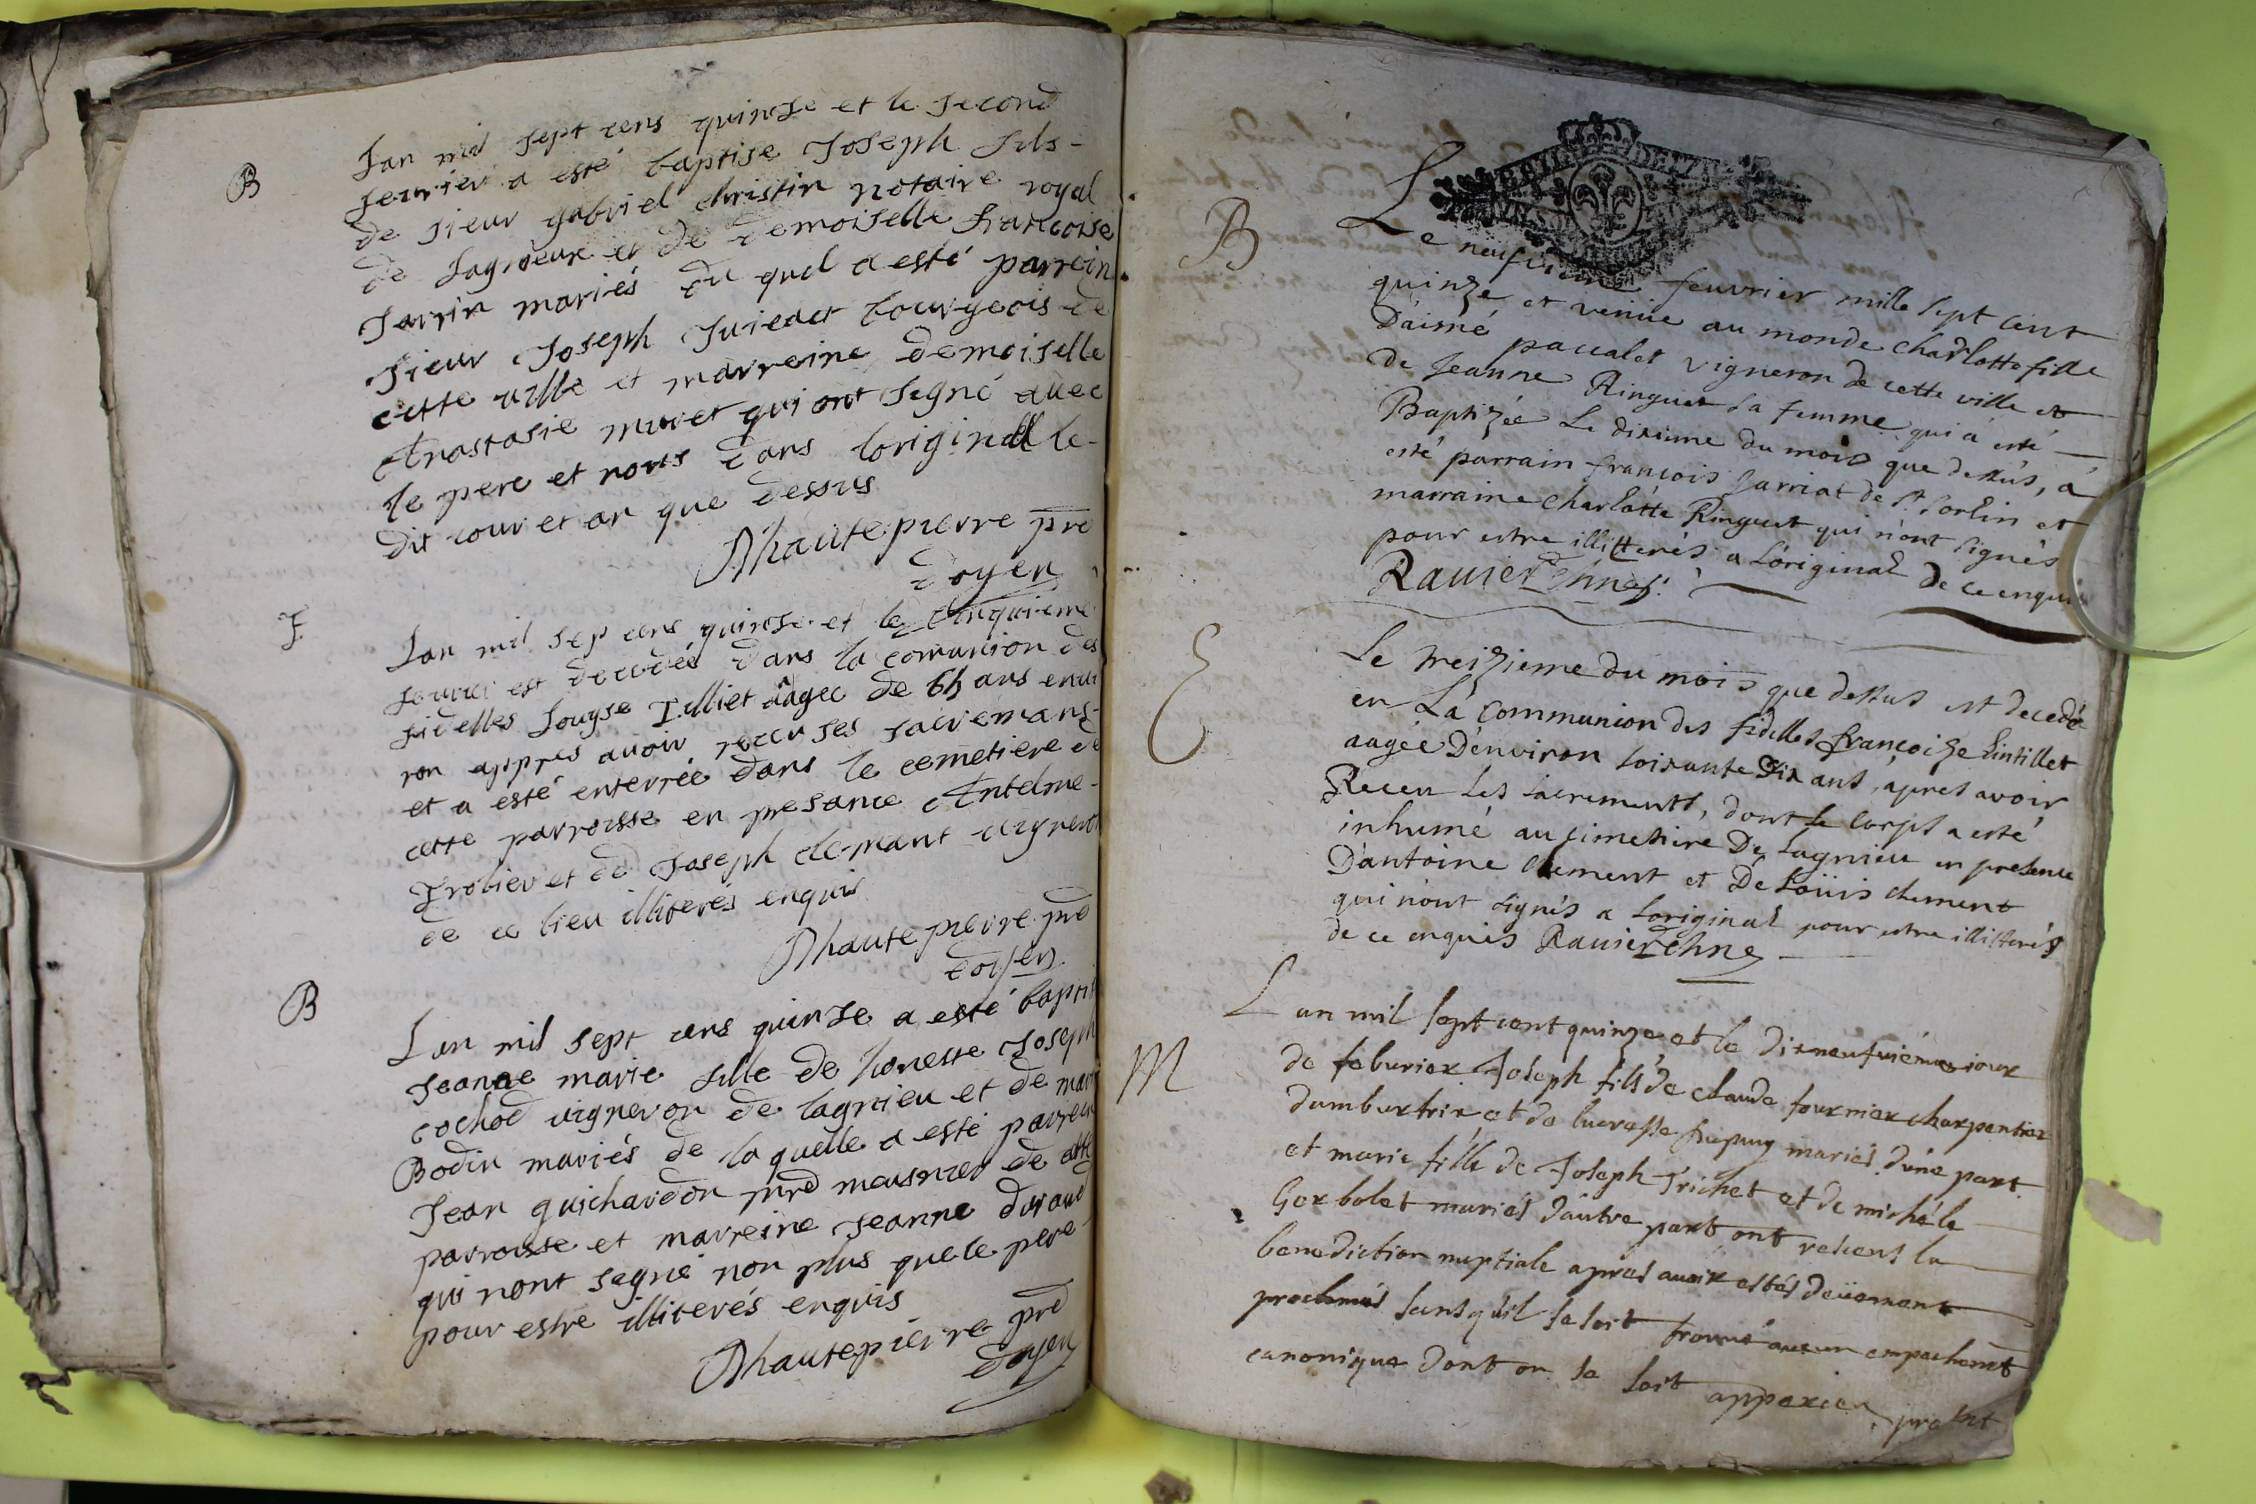 B
Lan mil sept cens quinse et le second
feuvrier a esté baptise Joseph fils
de sieur gabriel christin notaire royal
de Lagnieux et de demoiselle francoise
Sarrin mariés du quel a esté parrein
sieur Joseph bourgeois de
cette ville et marreine demoiselle
Anastasie muret qui ont segné avec
le pere et nous dans loriginall le
dit jour et an que dessus
Dhautepierre pre
doyen
Lan mil sep cens quinse et le cinquieme
feuvrier est decedée dans la comunion des
fidelles Louyse Tilliet aagee de 65 ans envi
ron appres avoir receu ses sacremans
et a esté enterrée dans le cemetiere de
cette parroisse en presance Antelme
Trolier et de Joseph clemant vigneron
de ce lieu illiterés enquis
Dhautepierre pre
doyen
B
Lan mil sept cens quinse a esté baptis
Jeanne marie fille de honeste Joseph
cochod vigneron de lagnieu et de mari
Bodin mariés de la quelle a esté parrein
Jean guichardon meusnier de cette
parroisse et marreine Jeanne durand
qui nont segné non plus que le pere
pour estre illiterés enquis
Dhautepierre pre
doyen
B
Le neufvieme feuvrier mille sept cent
quinze et venüe au monde charlotte fille
D'aimé paccalet vigneron de cette ville et
de Jeanne Ringuet sa femme qui a esté
Baptizée Le dixieme du mois que dessus, a
esté parrain francois Jarriat de St Sorlin et
marraine charlotte Ringuet qui n'ont signés
pour estre illitterés a L'original De ce enquis
Ravier
E
Le treizieme du mois que dessus est decedée
en La Communion des fidelles françoize Lintillet
aagée D'environ soixante dix ans, apres avoir
Receu Les sacrements, dont le corps a esté
inhumé au cimetiere De Lagnieu en presence
D'antoine Clement et De Loüis clement
qui n'ont signés a Loriginal pour estre illitterés
de ce enquis Ravier
M
Lan mil sept cent quinze et le dixneufviéme jour
de feburier Joseph fils de claude fournier charpentier
dambertrix et de lucresse mariés d'une part
et marie fille de Joseph Trichet et de michéle
Gerbolet mariés d'autre part ont reseus la
benediction nuptiale apres avoir estés deüement
proclmés sans quil se soit trouvé aucun empechemt
canonique dont on se soit apperieu,